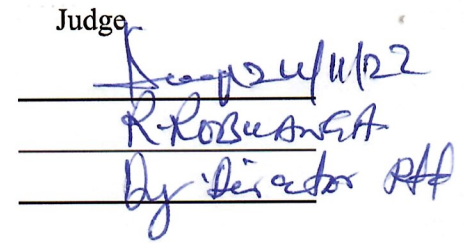 Judge
24/11/22
R. ROBUANGA
Dy Director